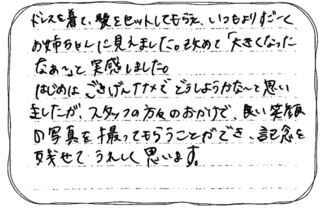 ドレスを着て、髪をセットしてもらえ、いつもよりすごーく
お姉ちゃんに見えました。改めて「大きくなった
なぁ〜」と実感しました。
はじめは ごきげんナナメで どうしようかな〜と思い
ましたが、スタッフの方々のおかげで、良い笑顔
の写真を撮ってもらうことができ、記念を
残せて うれしく思います。